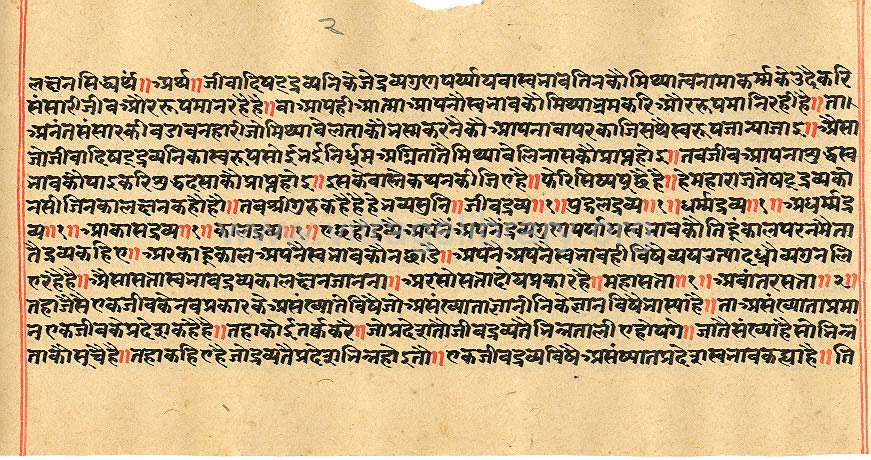 २
लछनसिद्ध्यर्थं॥ अर्थ॥ जीवादिषट्द्रव्यनिकेजेद्रव्यगुणपर्य्यायवास्वभावतिनकौमिथ्यात्वनामाकर्म्मकेउदैकरि
संसारीजीवऔररूपमानरहेहै॥ वाआपहीआत्माआपनौस्वभावकौमिथ्याभ्रमकरिऔररूपमानिरहीहै॥ ता।
अनंतसंसारकीबढावनहारीजोमिथ्याबेलताकौभस्मकरनैकौआपनावापरकाजिसथैस्वरूपजान्याजाइ॥ अैसा
जोजीवादिषट्द्रव्यनिकास्वरूपसोईभईनिर्धूमअग्नितातैमिथ्याबेलिनासकौप्राप्तहोइ॥ तबजीवआपनाशुद्धस्व
भावकौपाइकरिशुद्धदसाकौप्राप्तहोइ॥ इसकेवास्तेकथनकीजिएहै॥ फेरिसिष्यपुछैहै॥ हेमहाराजतेषट्द्रव्यकौ
नसीजिनकालछनकहोहो॥ तबश्रीगुरुकहैहैहेभव्यसुनि॥ जीवद्रव्य॥१॥ पुद्गलद्रव्य॥१॥ धर्म्मद्रव्य॥१॥ अधर्म्मद्र
व्य॥१॥ आकासद्रव्य॥१॥ कालद्रव्य॥१॥
तैद्रव्यकहिए॥ अरकाहूकालअपनेस्वभावकौनछाडै॥ अपनैअपनैस्वभावहीविषैव्ययउत्पादध्रौव्यगनलि
एरहैहै॥ अैसासतास्वभावद्रव्यकालछनजानना॥ अरसोसतादोयप्रकारहै॥ महासता॥१॥ अवांतरसता॥२॥
तहाजैसेएकजीवकेनवप्रकारकेअसंख्यातेविषैजोअसंख्याताज्ञानीनिकेज्ञानविषैभास्याहै॥ ताअसंख्याताप्रमा
नएकजीवकेप्रदेशकहेहै॥ तहाकोईतर्ककरे॥ जोप्रदेशतोजीवद्रव्यतैभिन्नतालीएहोयगे॥ जातैसंख्याहैसोभिन्न
ताकौसूचैहै॥ तहाकहिएहैजोद्रव्यतैप्रदेशभिन्नहोइतौ॥ एकजीवद्रव्यविषैअसंख्यातप्रदेशस्वभावकह्याहै॥ ति